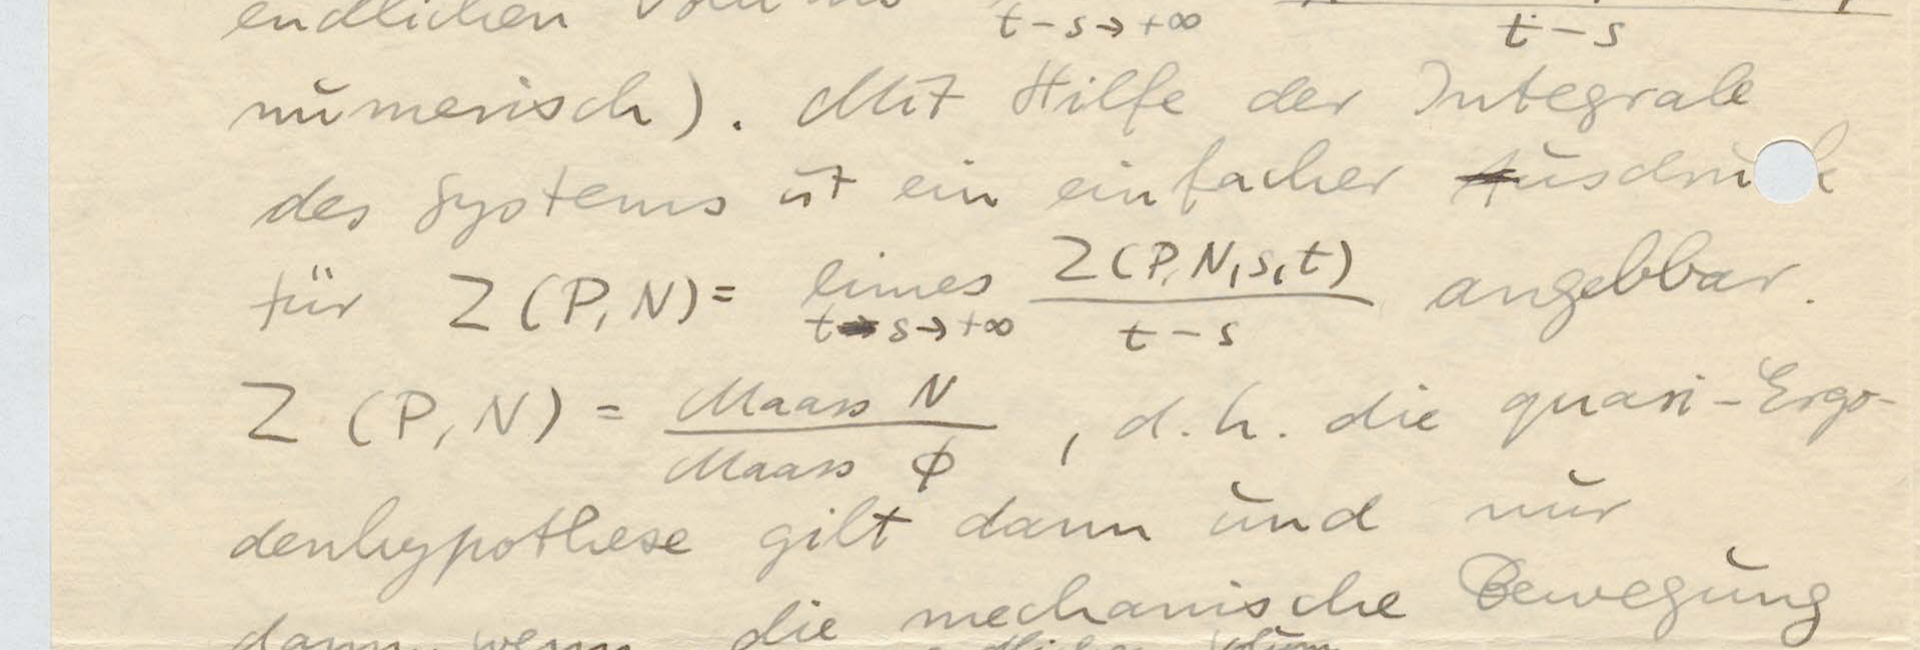 endlichen t-s→+∞ t-s
numerisch). Mit Hilfe der Integrale
des Systems ist ein einfacher Ausdruck
für Z(P,N)= limes t-s→+∞ Z(P,N,s,t) / t-s angebbar.
Z (P,N) = Maass N / Maass ϕ , d.h. die quasi-Ergo-
denhypothese gilt dann und nur
dann, wenn die mechanische Bewegung